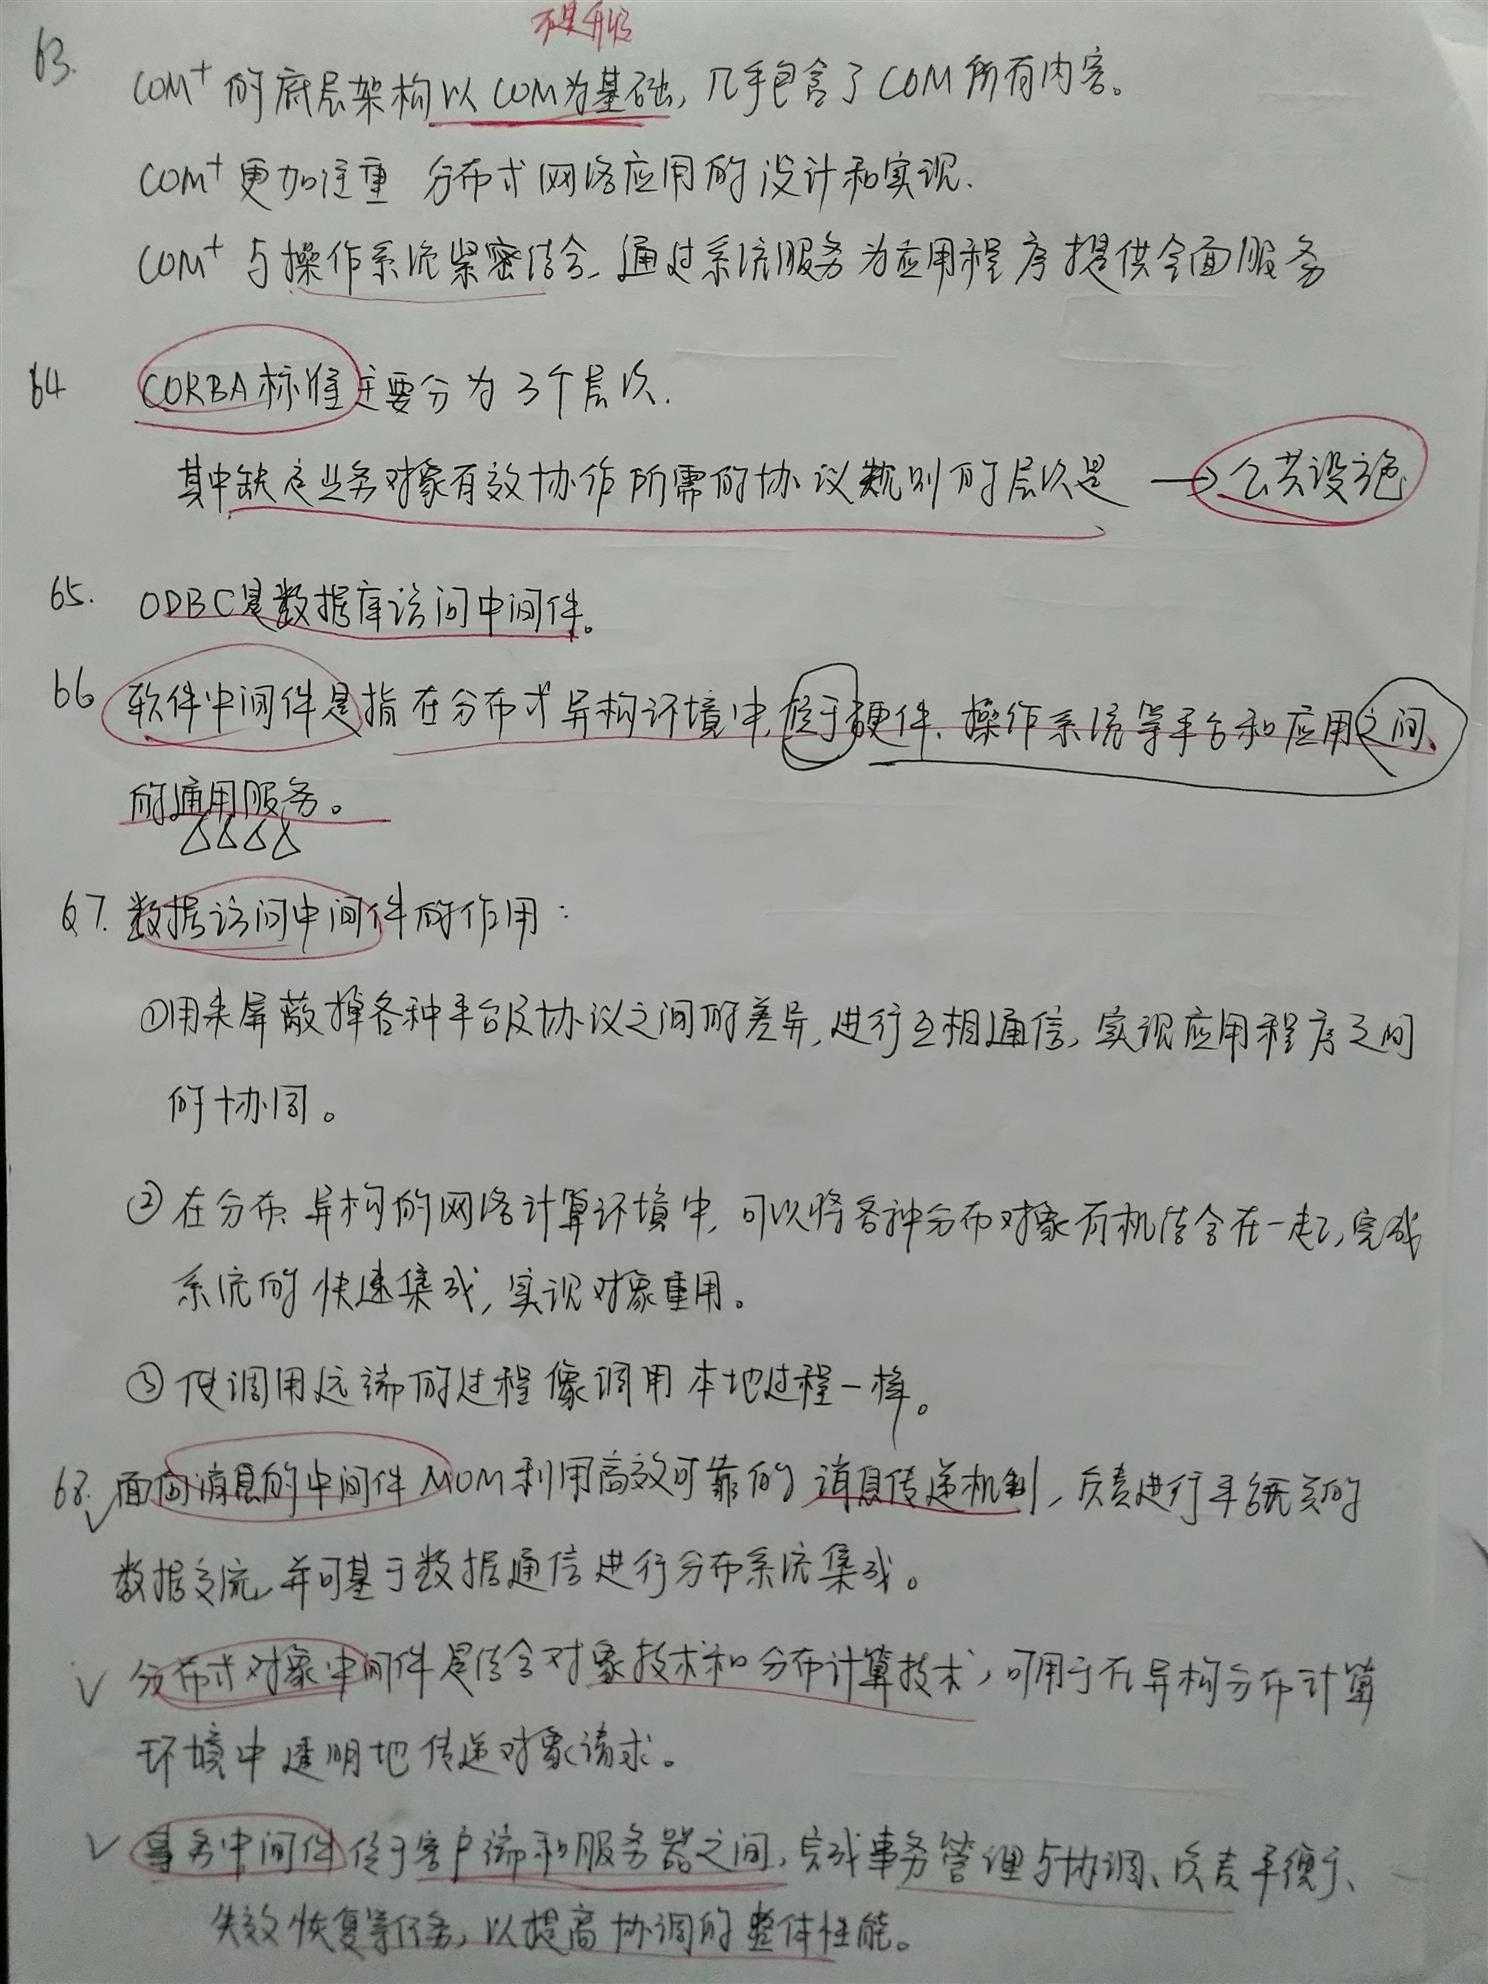 不是升级
63.
COM⁺的底层架构以COM为基础,几乎包含了COM所有内容。
COM⁺更加注重 分布式网络应用的设计和实现.
COM⁺与操作系统紧密结合,通过系统服务为应用程序提供全面服务
64 CORBA标准主要分为3个层次.
其中 业务对象有效协作所需的协议规则的层次是 → 公共设施
65. ODBC是数据库访问中间件。
66 软件中间件是指在分布式异构环境中,位于硬件、操作系统等平台和应用之间、
的通用服务。
67. 数据访问中间件的作用:
①用来屏蔽掉各种平台及协议之间的差异,进行互相通信,实现应用程序之间
的协同。
②在分布、异构的网络计算环境中,可以将各种分布对象有机结合在一起,完成
系统的快速集成,实现对象重用。
③使调用远端的过程像调用本地过程一样。
68. 面向消息的中间件MOM利用高效可靠的消息传递机制,负责进行平台无关的
数据交流,并可基于数据通信进行分布系统集成。
√ 分布式对象中间件是结合对象技术和分布计算技术,可用于在异构分布计算
环境中透明地传递对象请求。
√ 事务中间件位于客户端和服务器之间,完成事务管理与协调、负责平衡、
失效恢复等任务,以提高协调的整体性能。